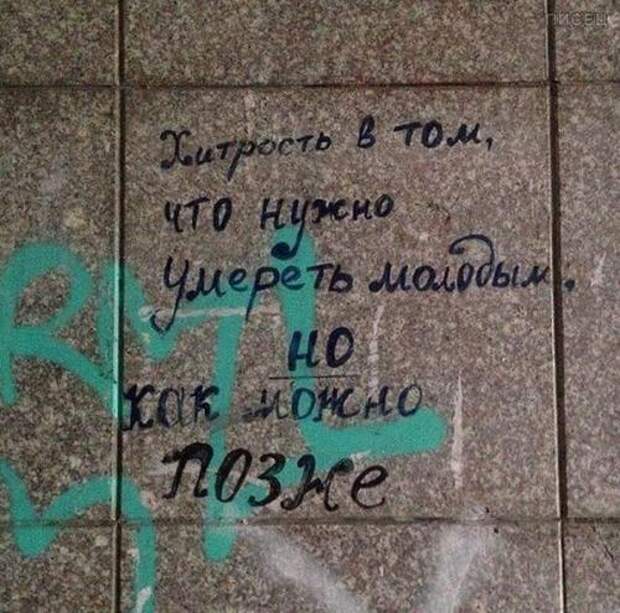 писец
Хитрость в том,
что нужно
умереть молодым.
но
как можно
позже